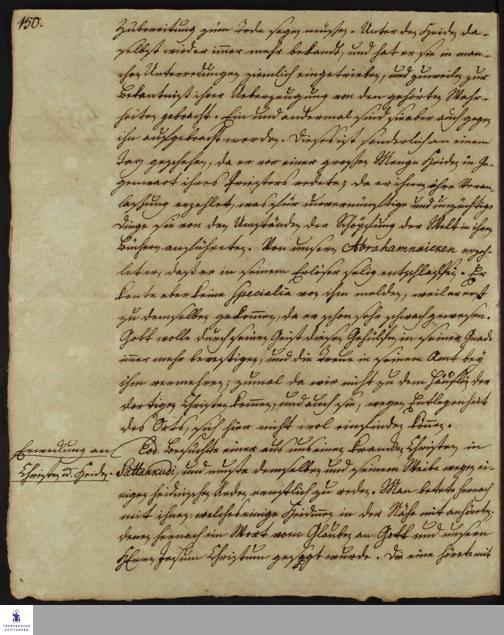 150.
Zubereitung zum Tode sagen müssen. Unter den Heiden da-
selbst wird er immer mehr bekandt, und hat er sie in man-
chen Unterredungen ziemlich eingetrieben, und zuweilen zur
Bekantniß ihrer Ueberzeugung von den gehörten Wahr-
heiten gebracht. Ein und andermal sind sie aber auch gegen
ihn aufgebracht worden. Dieses ist sonderlich an einem
Tag geschehen, da er vor einer grossen Menge Heiden in Ge-
genwart ihres Priesters redete; da er ihnen ihre Veran-
lassung erzehlet, was für unvernünftige und unzüchtige
Dinge sie von den Umständen der Schöpfung der Welt in ihren
Büchern anführeten. Von unserm Abrahamnaicken erzeh-
lete er, daß er in seinem Erlöser selig entschlaffen. Er
konte aber keine Specialia von ihm melden, weil er erst
zu demselben gekommen, da er schon sehr schwach gewesen.
Gott wolle durch seinen Geist diesen Gehülfen in seiner Gnade
immer mehr bevestigen, und die Treue in seinem Amt bey
ihm vermehren; zumal da wir nicht zu dem Häuflein der
dortigen Christen kommen, und auch sie, wegen Entlegenheit
des Orts, sich hier nicht wol einfinden können.
Ermahnung an
Christen u. Heiden.
Eod. besuchte einer aus uns einen krancken Christen in
Sattankudi, und muste demselben und seinem Weibe wegen ei-
niger heidnischen Reden ernstlich zu reden. Man betete hernach
mit ihnen: welches einige Heidinnen in der Nähe mit anhörten,
denen hernach ein Wort vom Glauben an Gott und unsern
HErrn JEsum Christum gesagt wurde. Die eine hörete mit
FRANCKESCHE
STIFTUNGEN